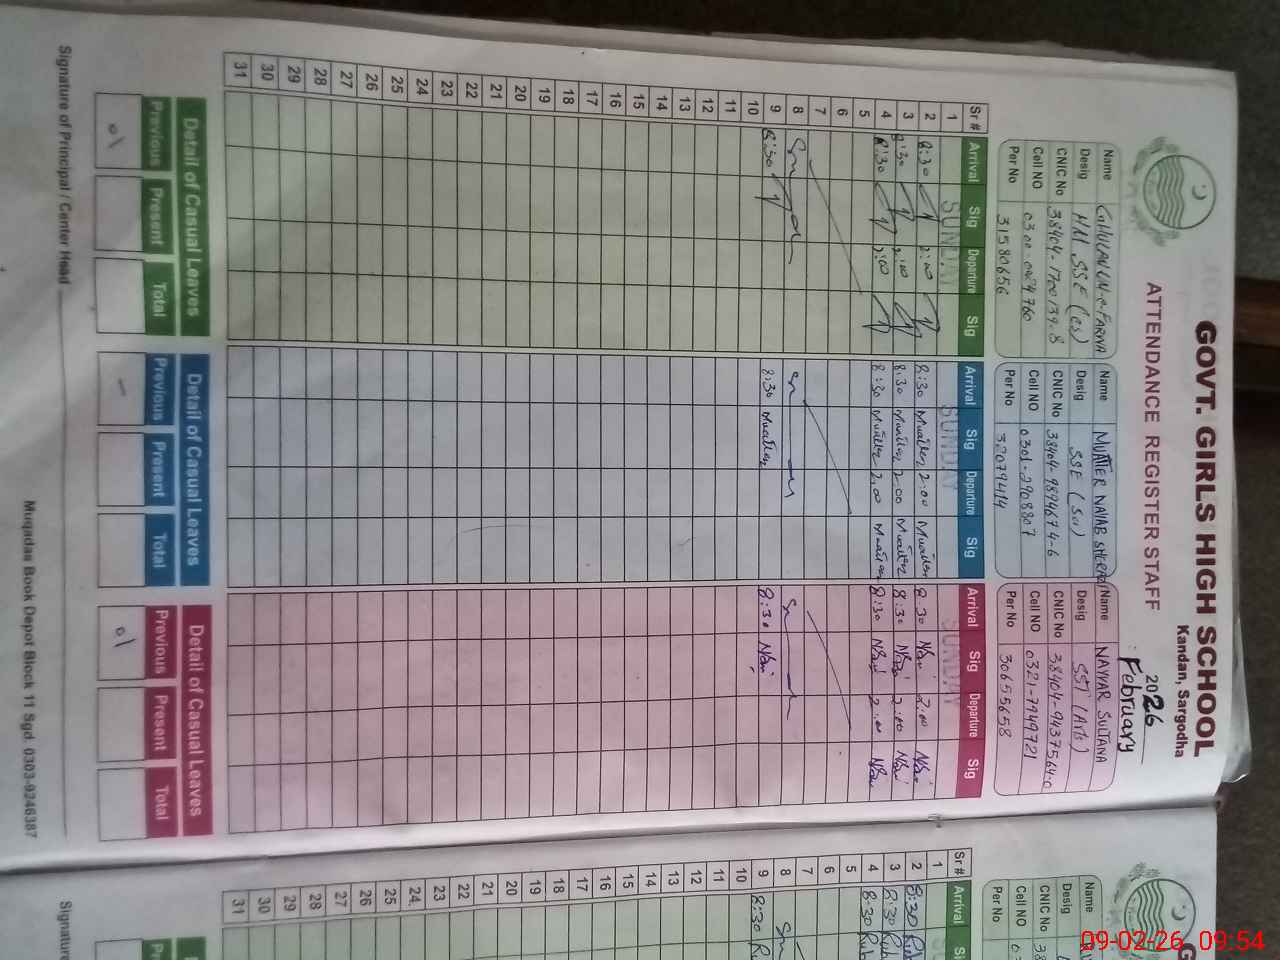 GOVT. GIRLS HIGH SCHOOL
Kandan, Sargodha
ATTENDANCE REGISTER STAFF
2026
February
Name
Desig HM SSE (CS)
CNIC No 38404-1700139-8
Cell NO
Per No 31580656
Name MUATTER NAYAB
Desig SSE (Sci)
CNIC No 38404-9894674-6
Cell NO 0301-2908807
Per No 32079414
Name NAYYAR SULTANA
Desig SST (Arts)
CNIC No 38404-9437564-0
Cell NO 0321-7949721
Per No 30655658
Sr # Arrival Sig Departure Sig Arrival Sig Departure Sig Arrival Sig Departure Sig
1 SUNDAY SUNDAY SUNDAY
2 8:30 2:00 8:30 Muatter 2:00 Muatter 8:30 2:00
3 8:30 2:00 8:30 Muatter 2:00 Muatter 8:30 2:00
4 8:30 2:00 8:30 Muatter 2:00 Muatter 8:30 2:00
5
6
7
8
9 8:30 8:30 Muatter 8:30
10
11
12
13
14
15
16
17
18
19
20
21
22
23
24
25
26
27
28
29
30
31
Detail of Casual Leaves
Previous Present Total
01
Detail of Casual Leaves
Previous Present Total
-
Detail of Casual Leaves
Previous Present Total
01
Signature of Principal / Center Head
Muqadas Book Depot Block 11 Sgd. 0303-9246387
Name
Desig
CNIC No 38
Cell NO
Per No
Sr # Arrival
1
2 8:30
3 8:30
4 8:30
5
6
7
8
9 8:30
10
11
12
13
14
15
16
17
18
19
20
21
22
23
24
25
26
27
28
29
30
31
Signature
09-02-26 09:54